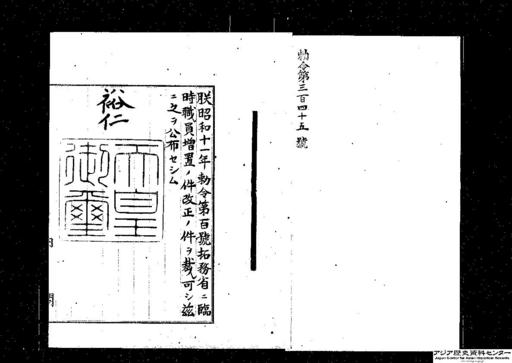 勅令第三百四十五號
朕昭和十一年勅令第百號拓務省ニ臨
時職員增置ノ件改正ノ件ヲ裁可シ茲
ニ之ヲ公布セシム
裕仁
天皇
御璽
アジア歴史資料センター
Japan Center for Asian Historical Records